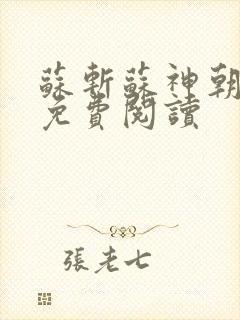 蘇斬蘇神朝
免費閱讀
張老七